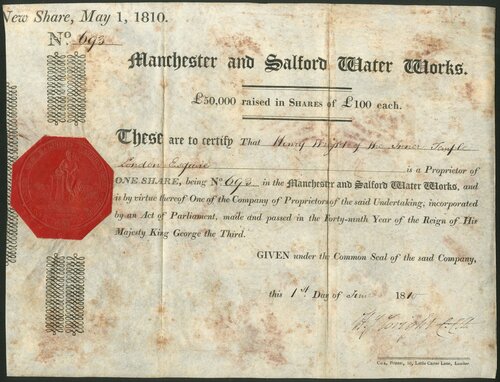 New Share, May 1, 1810.
No. 693
Manchester and Salford Water Works.
£50,000 raised in SHARES of £100 each.
These are to certify That Henry Wright of the Inner Temple
London Esquire is a Proprietor of
ONE SHARE, being No. 693 in the Manchester and Salford Water Works, and
is by virtue thereof One of the Company of Proprietors of the said Undertaking, incorporated
by an Act of Parliament, made and passed in the Forty-ninth Year of the Reign of His
Majesty King George the Third.
GIVEN under the Common Seal of the said Company,
this 1st Day of June 1810
Cox, Printer, Little Carter Lane, London